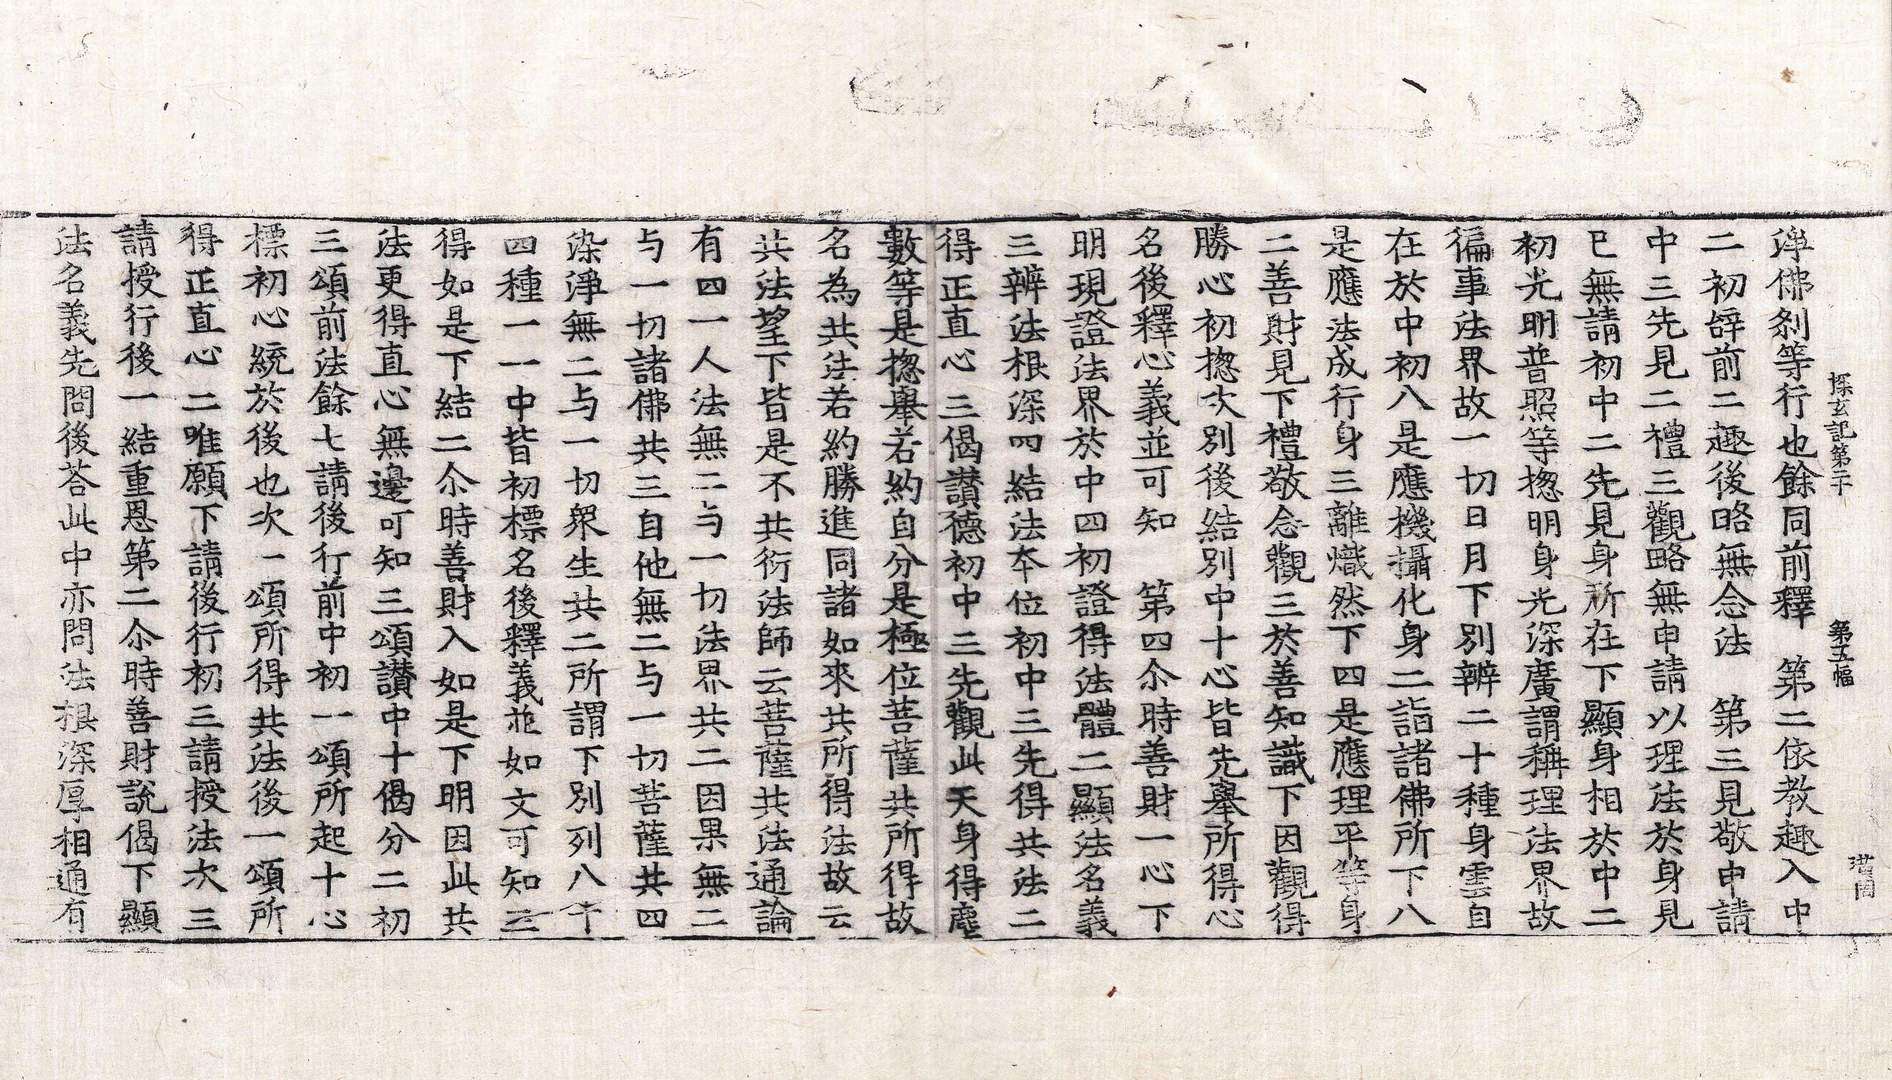 探玄記第二十 第五幅
淨佛刹等行也餘同前釋 第二依教趣入中
二初辝前二趣後略無念法 第三見敬申請
中三先見二禮三觀略無申請以理法於身見
已無請初中二先見身所在下顯身相於中二
初光明普照等揔明身光深廣謂稱理法界故
徧事法界故一切日月下別辨二十種身雲自
在於中初八是應機攝化身二詣諸佛所下八
是應法成行身三離熾然下四是應理平等身
二善財見下禮敬念觀三於善知識下因觀得
勝心初揔次別後結別中十心皆先舉所得心
名後釋心義並可知 第四尒時善財一心下
明現證法界於中四初證得法體二顯法名義
三辨法根深四結法本位初中三先得共法二
得正直心三偈讃德初中三先觀此天身得塵
數等是揔舉若約自分是極位菩薩共所得故
名為共法若約勝進同諸如來共所得法故云
共法望下皆是不共衍法師云菩薩共法通論
有四一人法無二与一切法界共二因果無二
与一切諸佛共三自他無二与一切菩薩共四
染淨無二与一切衆生共二所謂下別列八十
四種一一中皆初標名後釋義並如文可知三
得如是下結二尒時善財入如是下明因此共
法更得直心無邊可知三頌讃中十偈分二初
三頌前法餘七請後行前中初一頌所起十心
標初心統於後也次一頌所得共法後一頌所
得正直心二唯願下請後行初三請授法次三
請授行後一結重恩第二尒時善財說偈下顯
法名義先問後荅此中亦問法根深厚相通有